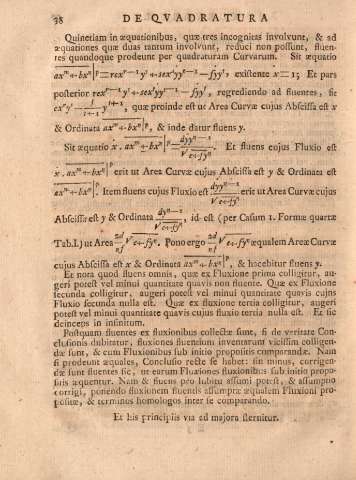 38 DE QVADRATURA
Quinetiam in æquationibus, quæ tres incognitas involvunt, & ad
æquationes quæ duas tantum involvunt, reduci non possunt, fluen-
tes quandoque prodeunt per quadraturam Curvarum. Sit æquatio
posterior rex^e y^{s-1} y + sex^r y y^{s-1} — f y y^t, regrediendo ad fluentes, fit
, quæ proinde est ut Area Curvæ cujus Abscissa est x
& Ordinata ax^m + bx^n|^p, & inde datur fluens y.
Sit æquatio x . ax^m + bx^n|^p = d y y^{n-1} / √e + fy^n. Et fluens cujus Fluxio est
x . ax^m + bx^n|^p erit ut Area Curvæ cujus Abscissa est x & Ordinata est
ax^m + bx^n|^p. Item fluens cujus Fluxio est d y y^{n-1} / √e + fy^n erit ut Area Curvæ cujus
Abscissa est y & Ordinata d y^{n-1} / √e + fy^n, id est (per Casum 1. Formæ quartæ
Tab.I.) ut Area 2d/nf √e + fy^n. Pono ergo 2d/nf √e + fy^n æqualem Areæ Curvæ
cujus Abscissa est x & Ordinata ax^m + bx^n|^p, & habebitur fluens y.
Et nota quod fluens omnis, quæ ex Fluxione prima colligitur, au-
geri potest vel minui quantitate quavis non fluente. Quæ ex Fluxione
secunda colligitur, augeri potest vel minui quantitate quavis cujus
Fluxio secunda nulla est. Quæ ex fluxione tertia colligitur, augeri
potest vel minui quantitate quavis cujus fluxio tertia nulla est. Et sic
deinceps in infinitum.
Postquam fluentes ex fluxionibus collectæ sunt, si de veritate Con-
clusionis dubitatur, fluxiones fluentium inventarum vicissim colligen-
dæ sunt, & cum Fluxionibus sub initio propositis comparandæ. Nam
si prodeunt æquales, Conclusio recte se habet: sin minus, corrigen-
dæ sunt fluentes sic, ut earum Fluxiones fluxionibus sub initio propo-
sitis æquentur. Nam & fluens pro lubitu assumi potest, & assumptio
corrigi, ponendo fluxionem fluentis assumptæ æqualem Fluxioni pro-
positæ, & terminos homologos inter se comparando.
Et his principiis via ad majora sternitur.